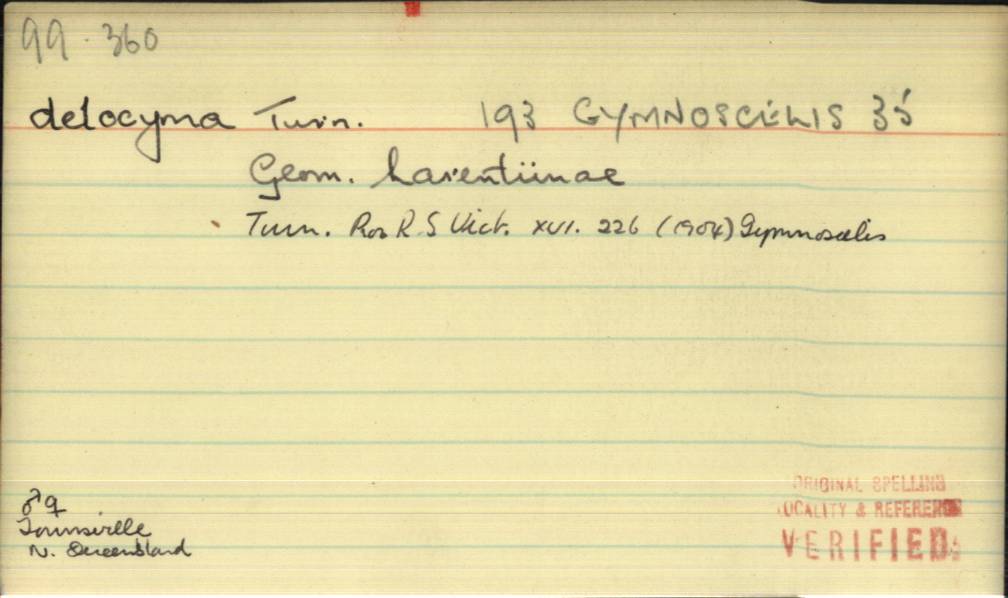 99.360
delocyma Turn. 193 GYMNOSCELIS 35
Geom. Larentiinae
Turn. Pros R.S Vict. XVI. 226 (1904) Gymnoscelis
♂♀
Townsville
N. Queensland
ORIGINAL SPELLING
LOCALITY & REFERENCE
VERIFIED